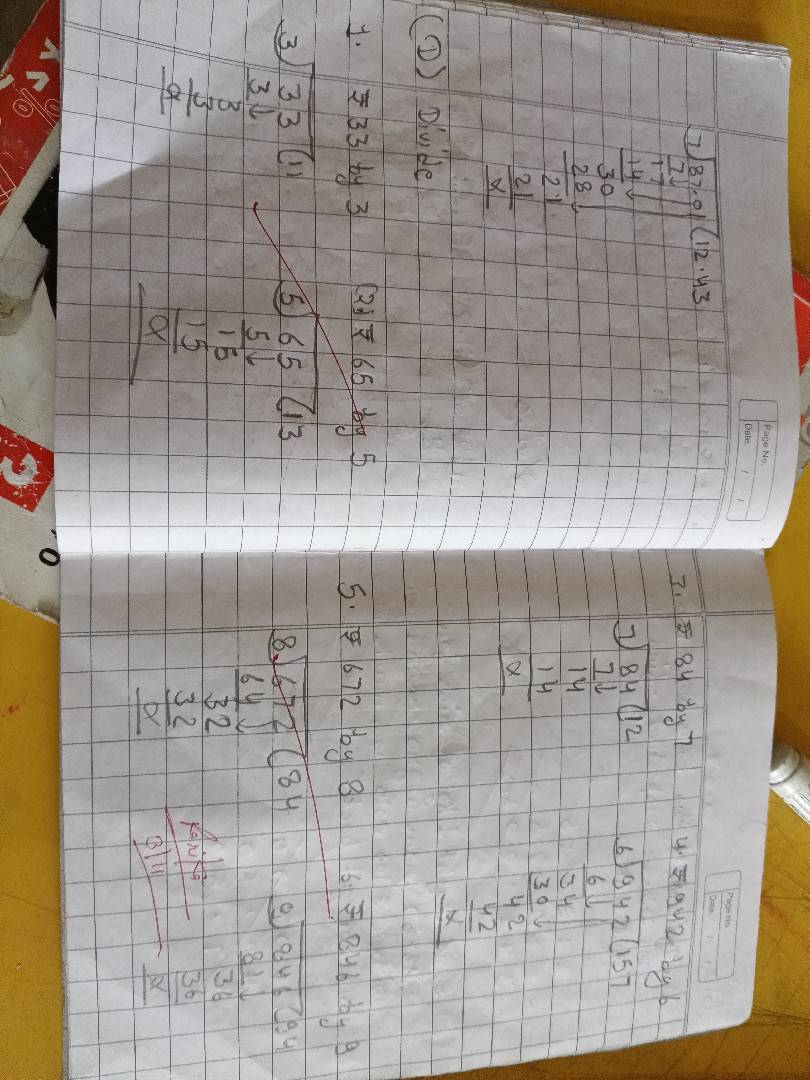 Page No.
Date: / /
7) 87.01 ( 12.43
7↓
17
14↓
30
28↓
21
21
x
(D) Divide
1. ₹ 33 by 3
3) 33 ( 11
3↓
3
3
x
(2) ₹ 65 by 5
5) 65 ( 13
5↓
15
15
x
Page No.
Date: / /
3. ₹ 84 by 7
7) 84 ( 12
7↓
14
14
x
4. ₹ 942 by 6
6) 942 ( 157
6↓
34
30↓
42
42
x
5. ₹ 672 by 8
8) 672 ( 84
64↓
32
32
x
6. ₹ 846 by 9
9) 846 ( 94
81↓
36
36
x